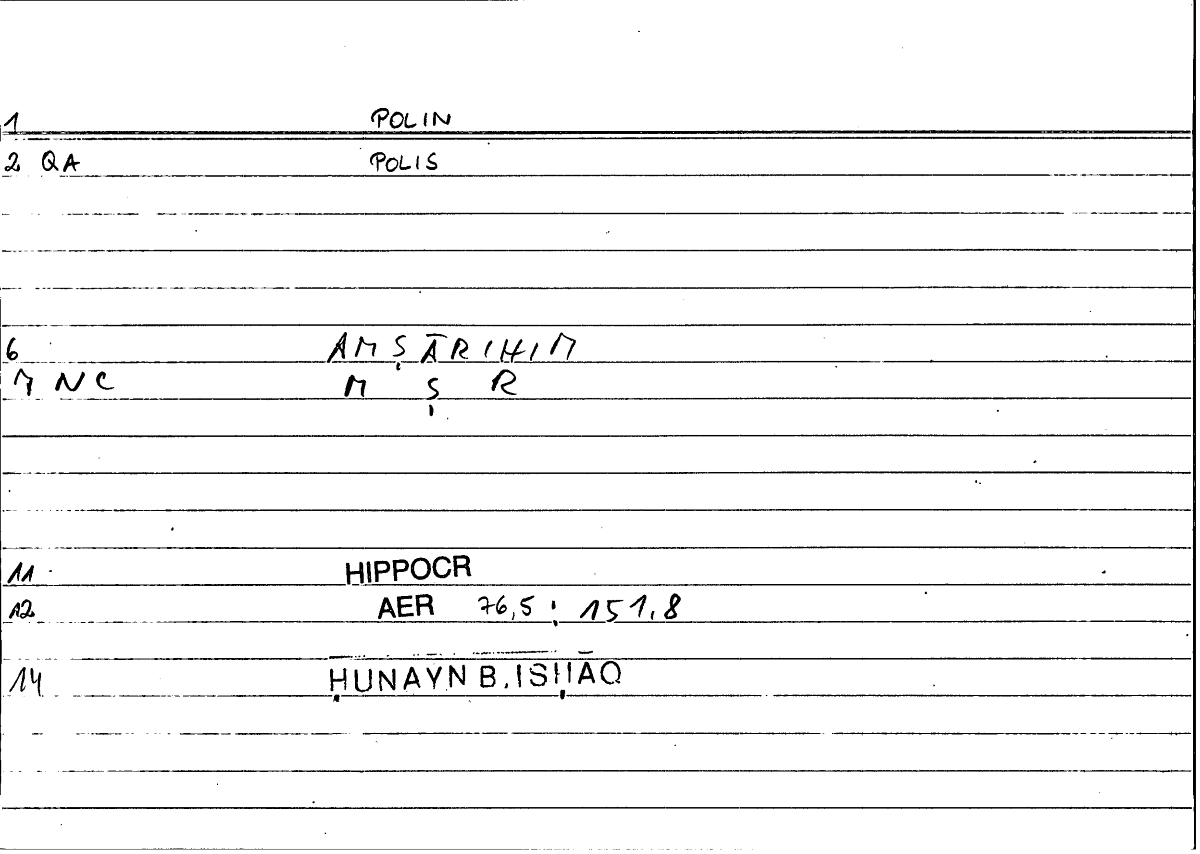 1 POLIN
2 QA POLIS
6 AMṢĀRIHIM
7 NC M Ṣ R
11 HIPPOCR
12 AER 76,5 : 151,8
14 ḤUNAYN B. ISḤĀQ